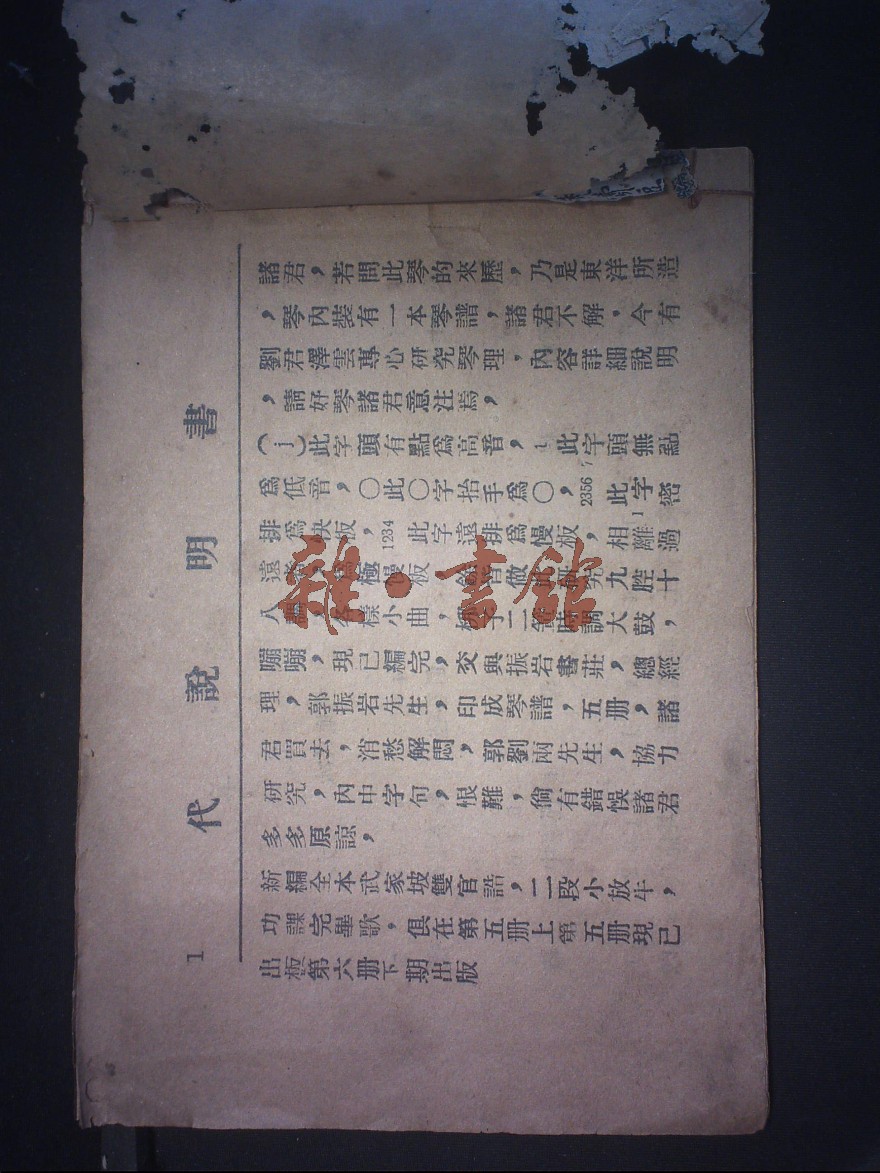 1 代說明書
諸君，若問此琴的來歷，乃是東洋所造
，琴內裝有一本琴譜，諸君不解，今有
劉君澤雲專心研究琴理，內容詳細說明
，請好琴諸君意注焉，
（i）此字頭有點爲高音，1此字頭無點
爲低音，〇此〇字抬手爲〇，23567此字密
排爲快板，1234此字遠排爲慢板，相離過
遠極慢板九腔十
八樣小曲，二時調大鼓，
嘣嘣，現已編完，交與振岩書莊，總經
理，郭振岩先生，印成琴譜，五册，諸
君買去，消愁解悶，郭劉兩先生，協力
研究，內中字句，恨難，倘有錯悞諸君
多多原諒，
新編全本武家坡雙官誥，一段小放牛，
功課完畢歌，俱在第五册上第五册現已
出板第六册下期出版
雜·書館